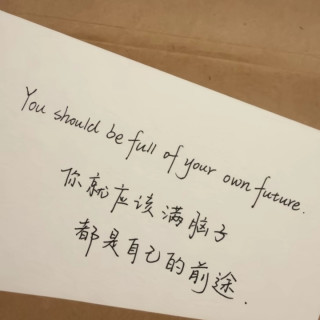 You should be full of your own future.
你就应该满脑子
都是自己的前途.